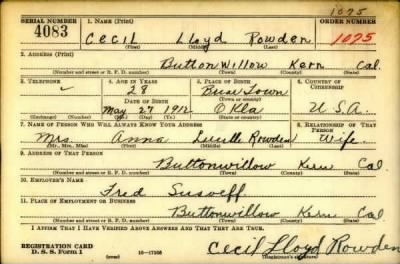 1075
SERIAL NUMBER 1. NAME (Print) ORDER NUMBER
4083 Cecil Lloyd Rowden 1075
(First) (Middle) (Last)
2. ADDRESS (Print)
Button Willow Kern Cal.
(Number and street or R. F. D. number) (Town) (County) (State)
3. TELEPHONE 4. AGE IN YEARS 5. PLACE OF BIRTH 6. COUNTRY OF CITIZENSHIP
28
DATE OF BIRTH (Town or county)
May 27 1912 Okla U.S.A.
(Exchange) (Number) (Mo.) (Day) (Yr.) (State or country)
7. NAME OF PERSON WHO WILL ALWAYS KNOW YOUR ADDRESS 8. RELATIONSHIP OF THAT PERSON
Mrs. Anna Lucille Rowden Wife
(Mr., Mrs., Miss) (First) (Middle) (Last)
9. ADDRESS OF THAT PERSON
Buttonwillow Kern Cal
(Number and street or R. F. D. number) (Town) (County) (State)
10. EMPLOYER'S NAME
Fred
11. PLACE OF EMPLOYMENT OR BUSINESS
Buttonwillow Kern Cal
(Number and street or R. F. D. number) (Town) (County) (State)
I AFFIRM THAT I HAVE VERIFIED ABOVE ANSWERS AND THAT THEY ARE TRUE.
REGISTRATION CARD
D. S. S. Form 1 16—17105 Cecil Lloyd Rowden
(Registrant's signature)